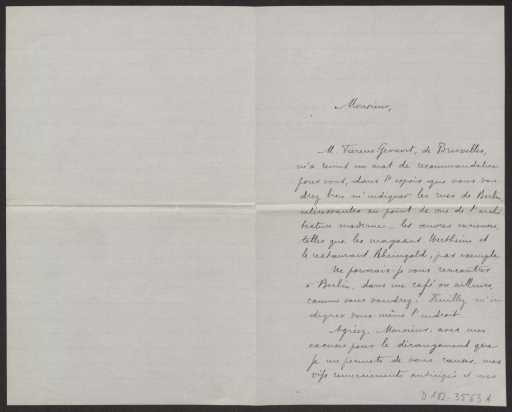 Monsieur,
M. Fierens Gevaert, de Bruxelles,
m'a remis un mot de recommandation
pour vous, dans l'espoir que vous vou-
drez bien m'indiquer les rues de Berlin,
intéressantes au point de vue de l'archi
tecture moderne - les œuvres
telles que les magasins Wertheim et
le restaurant Rheingold, par exemple.
Ne pourrais-je vous rencontrer
à Berlin, dans un café ou ailleurs,
comme vous voudrez? Veuillez m'in
diquer vous-même l'endroit.
Agréez, Monsieur, avec mes
excuses pour le dérangement que
je me permets de vous causer, mes
vifs remerciements anticipés et mes